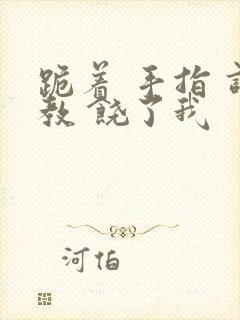 跪着 手指 
教 饶了我
河伯